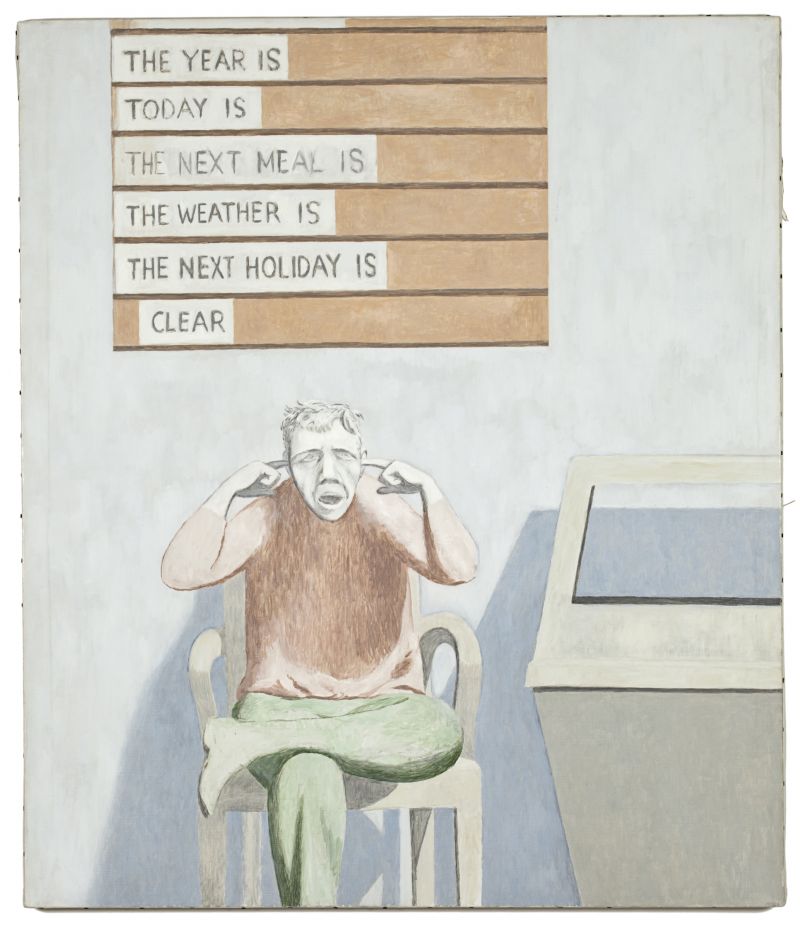 THE YEAR IS
TODAY IS
THE NEXT MEAL IS
THE WEATHER IS
THE NEXT HOLIDAY IS
CLEAR